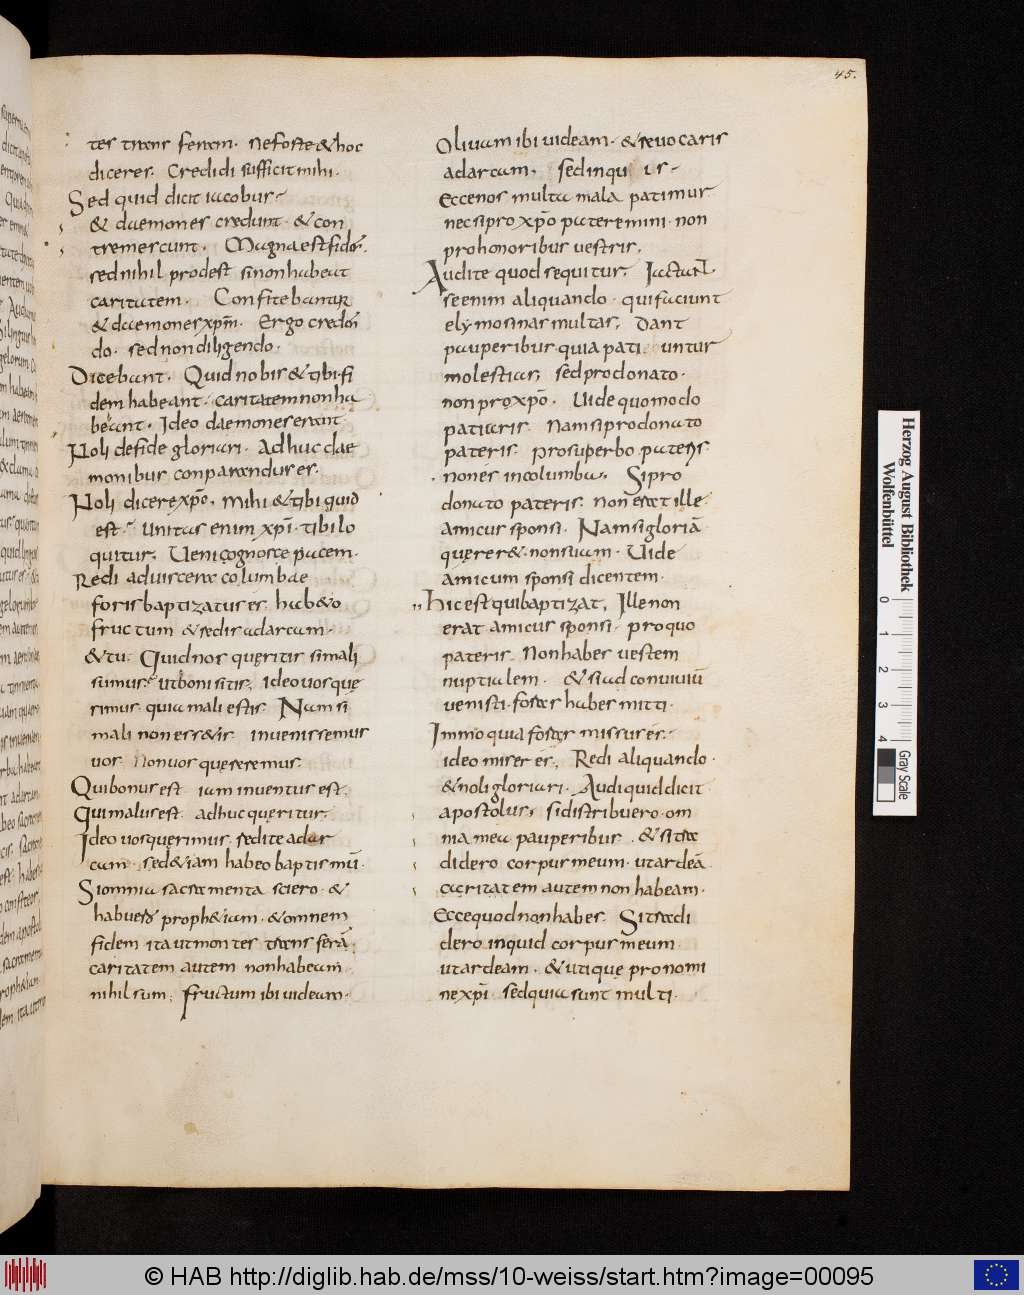 45.
tes trans feram. Ne forte & hoc
diceres. Credidi sufficit mihi.
Sed quid dicit iacobus.
& daemones credunt. & con
tremescunt. Magna est fides.
sed nihil prodest si non habeat
caritatem. Confitebantur
& daemones xpm. Ergo creden
do. sed non diligendo.
Dicebant. Quid nobis & tibi. fi
dem habeant. caritatem non ha
beant. Ideo daemones erant
Noli de fide gloriari. Adhuc dae
monibus comparandus es.
Noli dicere xpo, mihi & tibi quid
est. Unitas enim xpi. tibi lo
quitur. Ueni cognosce pacem.
Redi ad uiscera columbae
foris baptizatus es. hab&o
fructum & redis ad arcam.
& tu. Quid nos queritis si mali
sumus; ut boni sitis. Ideo uos quę
rimus. quia mali estis. Nam si
mali non ess&is. inuenissemus
uos. Non uos quęreremus.
Qui bonus est. iam inuentus est.
Qui malus est. adhuc queritur.
Ideo uos querimus. redite ad ar
cam. sed & iam habeo baptismū.
Si omnia sacramenta sciero. &
habuero proph&iam. & omnem
fidem. ita ut montes trans ferā.
caritatem autem non habeam
nihil sum. fructum ibi uideam.
Oliuam ibi uideam. & reuocaris
ad arcam. sed inqui is.
Ecce nos multa mala patimur
nec si pro xpo patere mini. non
pro honoribus uestris.
Audite quod sequitur.
se enim aliquando. qui faciunt
elymosinas multas. Dant
pauperibus. quia pati untur
molestias, sed pro donato.
non pro xpo. Uide quomodo
patiaris. Nam si pro donato
pateris. pro superbo pateris.
non es in columba. Si pro
donato pateris. non est ille
amicus sponsi. Nam si gloriā
quęrer&. non suam. Uide
amicum sponsi dicentem.
Hic est qui baptizat. Ille non
erat amicus sponsi. pro quo
pateris. Non habes uestem
nuptialem. & si ad conuiuiū
uenisti. foras habes mitti.
Immo quia foras missus es.
ideo miser es. Redi aliquando.
& noli gloriari. Audi quid dicit
apostolus, si distribuero om
nia mea pauperibus. & si tra
didero corpus meum. ut ardeā
caritatem autem non habeam.
Ecce quod non habes. Si tradi
dero inquid corpus meum.
ut ardeam. & utique pro nomi
ne xpi. sed quia sunt multi.
Herzog August Bibliothek
Wolfenbüttel
0 1 2 3 4
Gray Scale
© HAB http://diglib.hab.de/mss/10-weiss/start.htm?image=00095